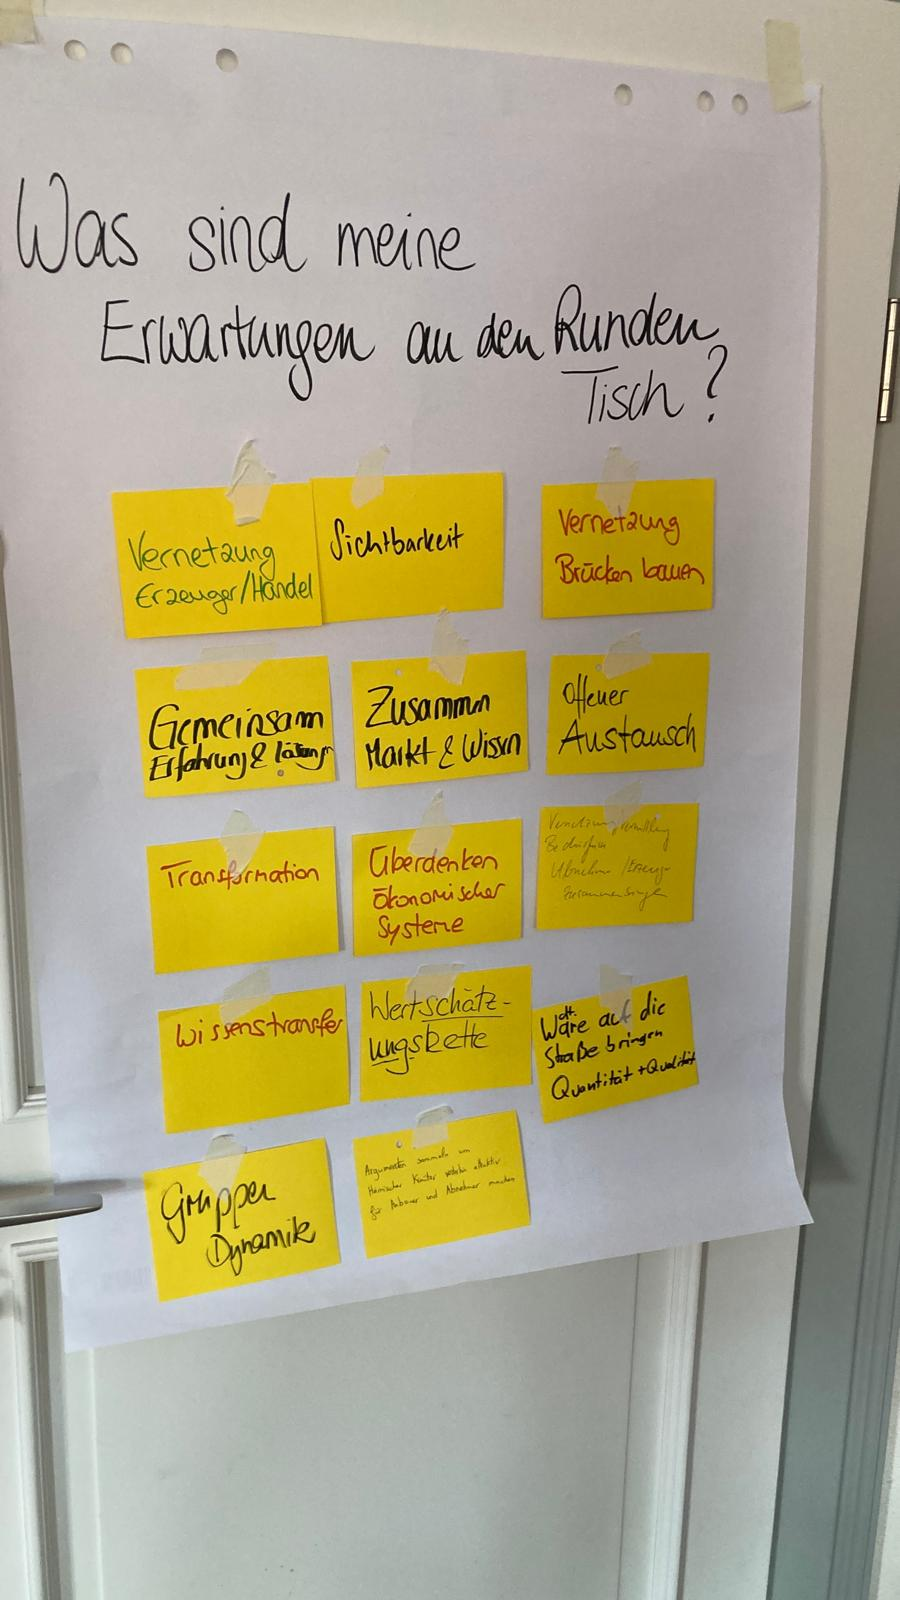 Was sind meine
Erwartungen an den Runden
Tisch?
Vernetzung
Erzeuger/Handel
Sichtbarkeit
Vernetzung
Brücken bauen
Gemeinsam
Erfahrung &
Zusammen
Markt & Wissen
Offener
Austausch
Transformation
Überdenken
ökonomischer
Systeme
Abnehmer / Erzeuger
Wissenstransfer
Wertschätz-
ungskette
dt.
Ware auf die
Straße bringen
Quantität + Qualität
Gruppen
Dynamik
Argumente sammeln um
Heimischer Kräuter attraktiv
für Anbauer und Abnehmer machen